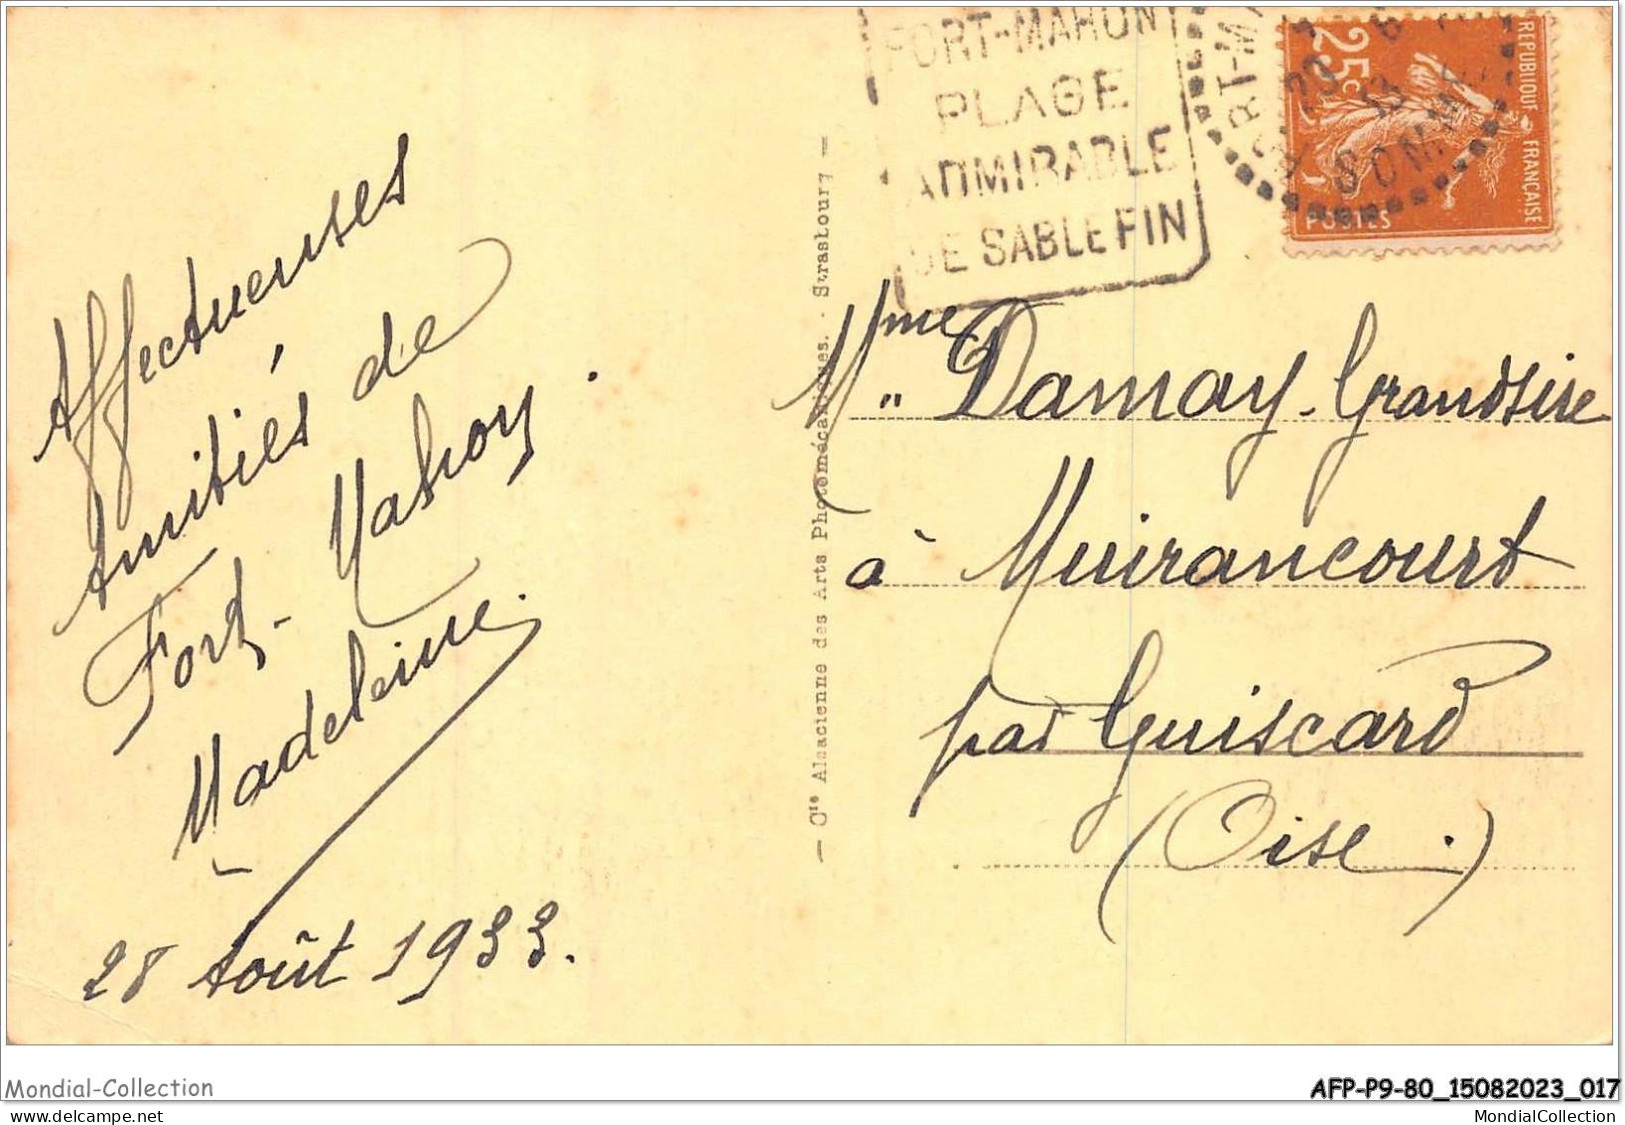 Affectueuses
Amitiés de
Fort-Mahon.
Madeleine.
28 Août 1933.
Cie Alsacienne des Arts Photomécaniques. - Strasbourg
FORT-MAHON
PLAGE
ADMIRABLE
DE SABLE FIN
RT-M
SOMME
25c
REPUBLIQUE FRANÇAISE
POSTES
Mme Damay-Grandsire
à Muirancourt
par Guiscard
(Oise.)
Mondial-Collection
AFP-P9-80_15082023_017
www.delcampe.net
MondialCollection